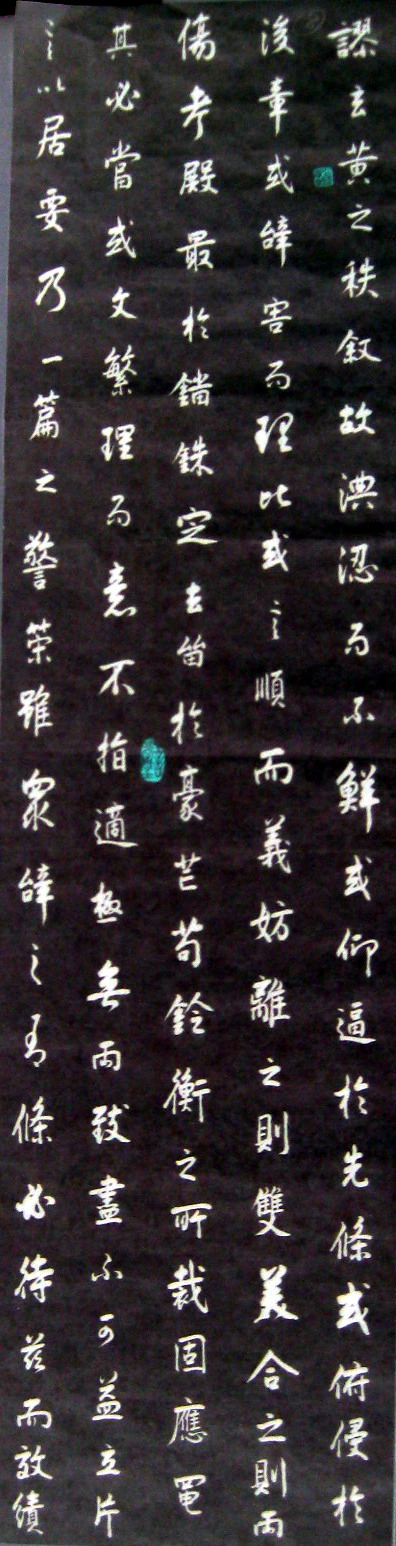 謬玄黃之秩敘故淟涊而不鮮或仰逼於先條或俯侵於
後章或辭害而理比或言順而義妨離之則雙美合之則兩
傷考殿最於錙銖定去留於豪芒苟銓衡之所裁固應繩
其必當或文繁理而意不指適極無兩致盡不可益立片
言以居要乃一篇之警策雖衆辭之有條必待茲而效績